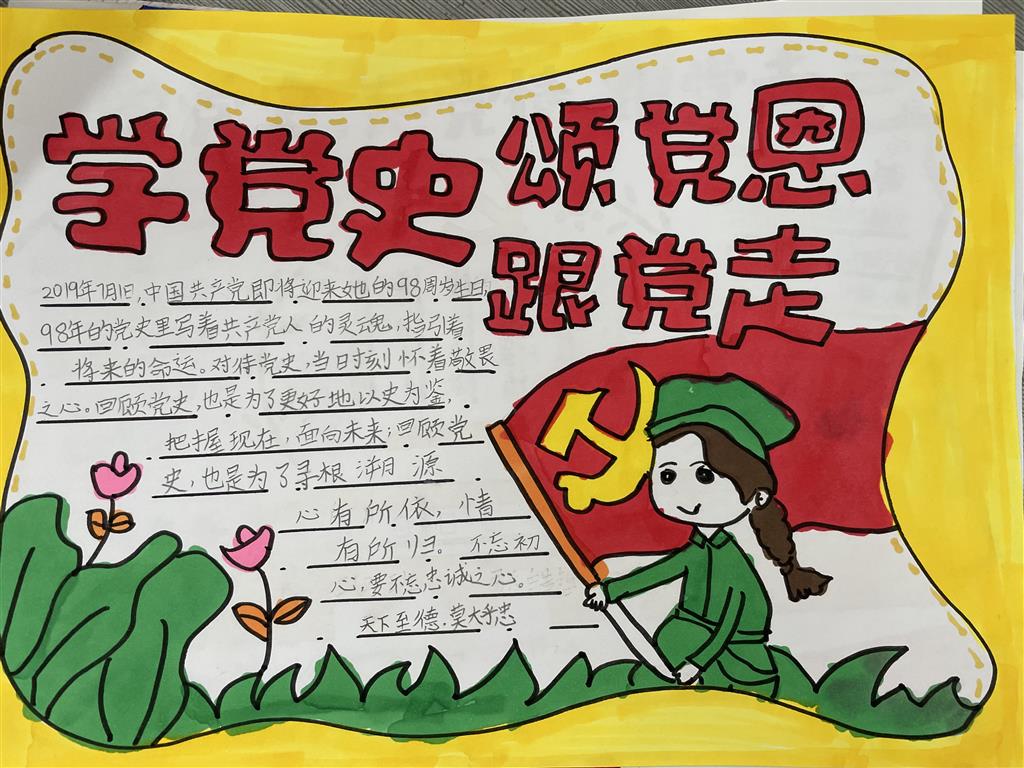 学党史 颂党恩
跟党走
2019年7月1日,中国共产党即将迎来她的98周岁生日,
98年的党史里写着共产党人的灵魂,指引着
将来的命运。对待党史,当日时刻怀着敬畏
之心。回顾党史,也是为了更好地以史为鉴,
把握现在,面向未来;回顾党
史,也是为了寻根溯源
心有所依,情
有所归。不忘初
心,要不忘忠诚之心。
天下至德.莫大乎忠